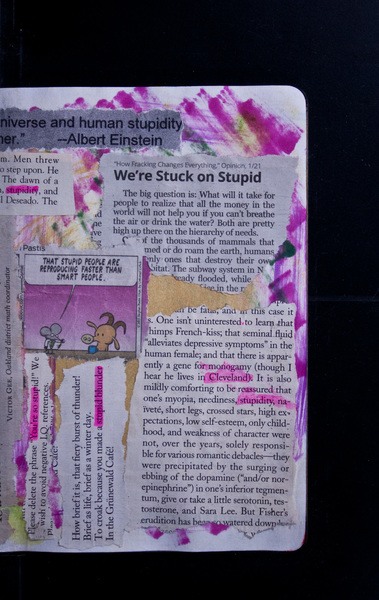 niverse and human stupidity
er." --Albert Einstein
m. Men threw
o step upon. He
The dawn of a
n. stupidity, and
l Deseado. The
"How Fracking Changes Everything," Opinion, 1/21
We're Stuck on Stupid
The big question is: What will it take for
people to realize that all the money in the
world will not help you if you can't breathe
the air or drink the water? Both are pretty
high up there on the hierarchy of needs.
of the thousands of mammals that
med or do roam the earth, humans
nly ones that destroy their ow
bitat. The subway system in N
already flooded, while
in the r
Pastis
THAT STUPID PEOPLE ARE
REPRODUCING FASTER THAN
SMART PEOPLE.
can be fatal, and in this case it
s. One isn't uninterested to learn that
himps French-kiss; that seminal fluid
"alleviates depressive symptoms" in the
human female; and that there is appar-
ently a gene for monogamy (though I
hear he lives in Cleveland). It is also
mildly comforting to be reassured that
one's myopia, neediness, stupidity, na-
ïveté, short legs, crossed stars, high ex-
pectations, low self-esteem, only child-
hood, and weakness of character were
not, over the years, solely responsi-
ble for various romantic debacles—they
were precipitated by the surging or
ebbing of the dopamine ("and/or nor-
epinephrine") in one's inferior tegmen-
tum, give or take a little serotonin, tes-
tosterone, and Sara Lee. But Fisher's
erudition has been so watered down
VICTOR GEE, Oakland district math coordinator
Please delete the phrase "You're so stupid!" We
wish to avoid negative I.Q. references.
How brief it is, that fiery burst of thunder!
Brief as life, brief as a winter day.
To croak because you made a stupid blunder
In the Grünewald Café!